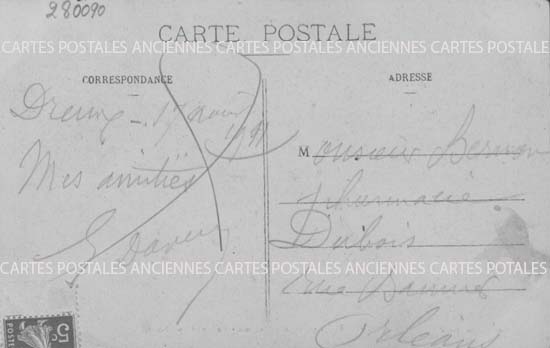 280090
CARTE POSTALE
CARTES POSTALES ANCIENNES CARTES POSTALES ANCIENNES CARTES POTALES
CORRESPONDANCE
ADRESSE
Dreux - 17 août
Mes amitiés
Monsieur
pharmacie
Dubois
rue
Orléans
CARTES POSTALES ANCIENNES CARTES POSTALES ANCIENNES CARTES POTALES
5c
POSTES